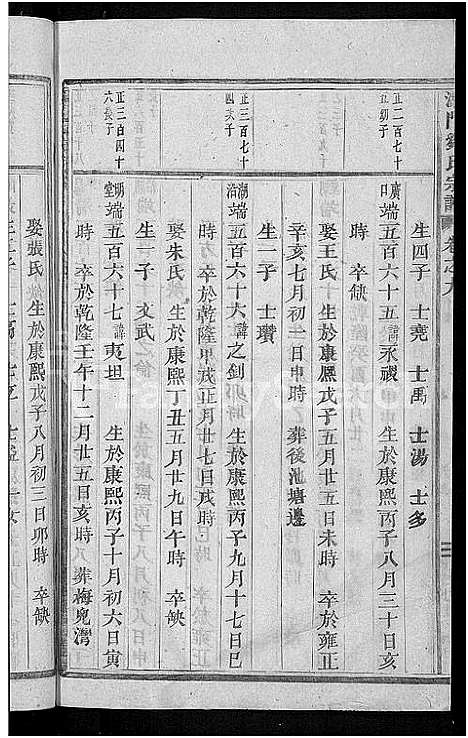 鄒氏宗譜 卷之九
生四子 士堯 士禹 士湯 士多
正二百七十五綱子
廣口 端五百六十五諱永禩 生於康熙丙子八月三十日亥
時 卒缺
娶王氏 生於康熙戊子五月廿五日未時 卒於雍正
辛亥七月初三日申時 葬後池塘邊
生一子 士瓚
正三百七十四文子
湖沿 端五百六十六諱之劍 生於康熙丙子九月十七日巳
時 卒於乾隆甲戌正月廿七日戌時
娶朱氏 生於康熙丁丑五月廿九日午時 卒缺
生一子 文武
正三百四十六長子
明堂 端五百六十七諱夷坦 生於康熙丙子十月初六日寅
時 卒於乾隆壬午十二月廿五日亥時 葬梅兒灣
娶張氏 生於康熙戊子八月初三日卯時 卒缺